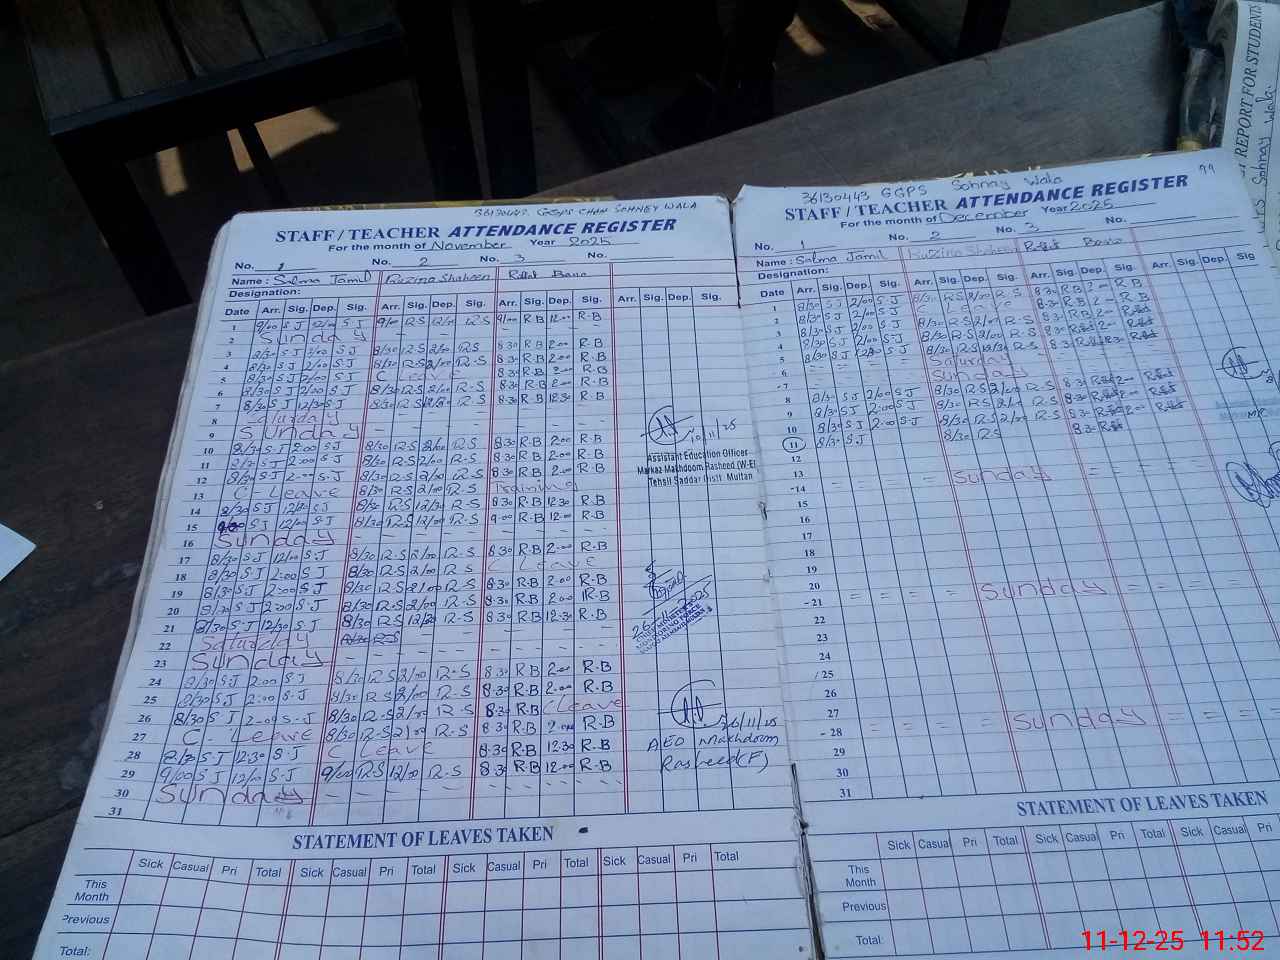 36130443 GGPS CHAN SOHNEY WALA
STAFF / TEACHER ATTENDANCE REGISTER
For the month of November Year 2025
No. 1 No. 2 No. 3 No.
Name: Salma Jamil Ruzina Shaheen Riffat Bano
Designation:
Date Arr. Sig. Dep. Sig. Arr. Sig. Dep. Sig. Arr. Sig. Dep. Sig. Arr. Sig. Dep. Sig.
1 9/00 S J 12/00 S J 9/00 R S 12/00 R S 9/00 R B 12.00 R.B
2 Sunday
3 8/30 S J 2/00 S J 8/30 R S 2/00 R S 8.30 R.B 2.00 R.B
4 8/30 S J 2/00 S J 8/30 R S 2/00 R.S 8.30 R.B 2.00 R.B
5 8/30 S J 2/00 S J C Leave 8.30 R.B 2.00 R.B
6 8/30 S J 2/00 S J 8/30 R.S 2/00 R.S 8.30 R.B 2.00 R.B
7 8/30 S J 12/30 S J 8/30 R.S 12/30 R.S 8.30 R.B 12.30 R.B
8 Saturday
9 Sunday
10 8/30 S J 2:00 S J 8/30 R.S 2/00 R.S 8.30 R.B 2.00 R.B
11 8/30 S J 2:00 S J 8/30 R.S 2/00 R.S 8.30 R.B 2.00 R.B
12 8/30 S J 2:00 S J 8/30 R.S 2/00 R.S 8.30 R.B 2.00 R.B
13 C- Leave 8/30 R.S 2/00 R.S Training
14 8/30 S J 12/30 S J 8/30 R.S 12/30 R.S 8.30 R.B 12.30 R.B
15 S J 12/00 S.J 8/30 R.S 12/00 R.S 9.00 R.B 12.00 R.B
16 Sunday
17 8/30 S.J 12/00 S.J 8/30 R.S 2/00 R.S 8.30 R.B 2.00 R.B
18 8/30 S J 2:00 S J 8/30 R.S 2/00 R.S C Leave
19 8/30 S J 2:00 S J 8/30 R.S 2/00 R.S 8.30 R.B 2.00 R.B
20 8/30 S J 2:00 S J 8/30 R.S 2/00 R.S 8.30 R.B 2.00 R.B
21 8/30 S J 12/30 S J 8/30 R.S 12/30 R.S 8.30 R.B 12.30 R.B
22 Saturday
23 Sunday
24 8/30 S.J 2:00 S.J 8/30 R.S 2/00 R.S 8.30 R.B 2.00 R.B
25 8/30 S J 2:00 S.J 8/30 R S 2/00 R.S 8.30 R.B 2.00 R.B
26 8/30 S J 2:00 S.J 8/30 R.S 2/00 R.S 8.30 R.B C Leave
27 C- Leave 8/30 R.S 2/00 R.S 8.30 R.B 2.00 R.B
28 8/30 S J 12:30 S.J C Leave 8.30 R.B 12.30 R.B
29 9/00 S J 12/00 S.J 9/00 R.S 12/00 R.S 8.30 R.B 12.00 R.B
30 Sunday
31
10/11/25
Assistant Education Officer
Markaz Makhdoom Rasheed (W-E)
Tehsil Saddar Distt Multan
26-11-2025
26/11/25
AEO Makhdoom
Rasheed(F)
STATEMENT OF LEAVES TAKEN
Sick Casual Pri Total Sick Casual Pri Total Sick Casual Pri Total Sick Casual Pri Total
This Month
Previous
Total:
36130443 GGPS Sohnay Wala
99
STAFF / TEACHER ATTENDANCE REGISTER
For the month of December Year 2025
No. 1 No. 2 No. 3 No.
Name: Salma Jamil Ruzina Shaheen Riffat Bano
Designation:
Date Arr. Sig. Dep. Sig. Arr. Sig. Dep. Sig. Arr. Sig. Dep. Sig. Arr. Sig. Dep. Sig
1 8/30 S J 2/00 S.J 8/30 R.S 2/00 R.S 8.30 R.B 2.00 R.B
2 8/30 S J 2/00 S J C Leave 8.30 R.B 2.00 R.B
3 8/30 S J 2/00 S J 8/30 R.S 2/00 R.S 8.30 R.B 2.00 R.B
4 8/30 S J 2/00 S J 8/30 R.S 2/00 R.S 8.30 R.B 2.00
5 8/30 S J 12/30 S J 8/30 R.S 12/30 R.S 8.30
6 Saturday
7 Sunday
8 8/30 S J 2/00 S J 8/30 R.S 2/00 R.S 8.30 2.00
9 8/30 S J 2:00 S J 8/30 R.S 2/00 R.S 8.30 2.00
10 8/30 S J 2:00 S J 8/30 R.S 2/00 R.S 8.30 2.00
11 8/30 S J 8/30 R.S 8.30
12
13
14 Sunday
15
16
17
18
19
20
21 Sunday
22
23
24
25
26
27
28 Sunday
29
30
31
STATEMENT OF LEAVES TAKEN
Sick Casual Pri Total Sick Casual Pri Total Sick Casual Pri
This Month
Previous
Total:
REPORT FOR STUDENTS
Sohnay Wala.
11-12-25 11:52